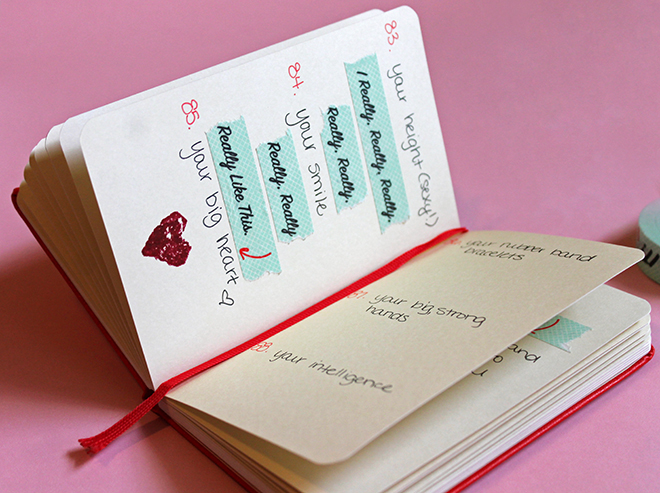 83. your height (sexy!)
I Really, Really, Really,
Really, Really,
84. your smile
Really, Really
Really Like This.
85. your big heart ♡
your rubber band
bracelets
your big, strong
hands
your intelligence
and